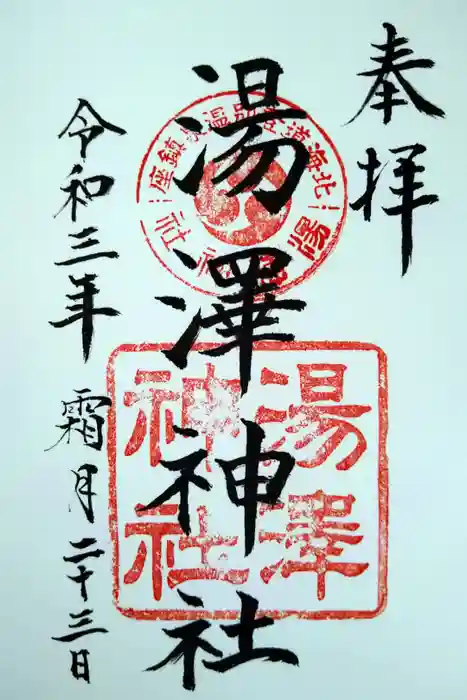 奉拝
湯澤神社
令和三年 霜月二十三日
北海道登別温泉鎮座
湯澤神社
湯澤神社